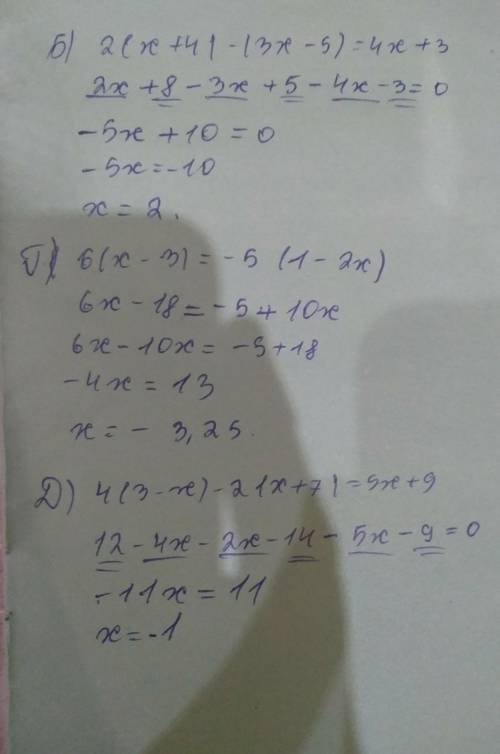 Б) 2(x+4)-(3x-5)=4x+3
2x+8-3x+5-4x-3=0
-5x+10=0
-5x=-10
x=2.
Г) 6(x-3)=-5(1-2x)
6x-18=-5+10x
6x-10x=-5+18
-4x=13
x=-3,25.
Д) 4(3-x)-2(x+7)=5x+9
12-4x-2x-14-5x-9=0
-11x=11
x=-1